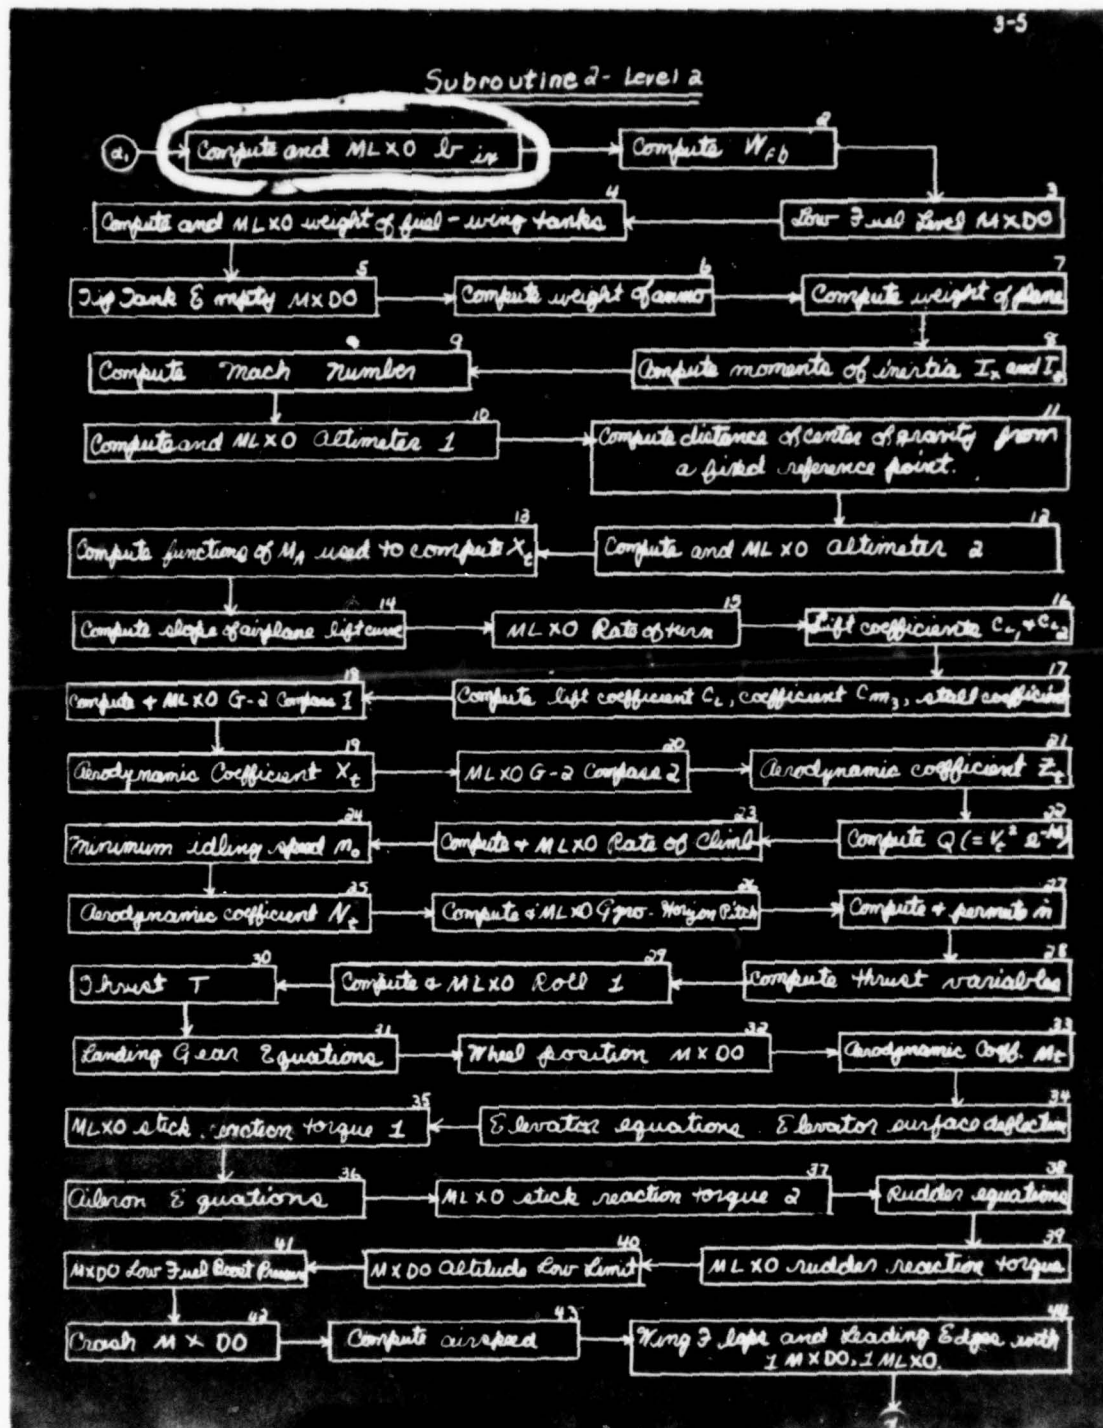 3-5
Subroutine 2 - Level 2
2.
Compute and MLXO b in
2
Compute W_fb
3
Low Fuel Level MXDO
4
Compute and MLXO weight of fuel - wing tanks
5
Tip Tank Empty MXDO
6
Compute weight of ammo
7
Compute weight of plane
8
Compute moments of inertia I_x and I_z
9
Compute Mach Number
10
Compute and MLXO Altimeter 1
11
Compute distance of center of gravity from
a fixed reference point.
12
Compute and MLXO Altimeter 2
13
Compute functions of M_A used to compute X_t
14
Compute slope of airplane lift curve
15
MLXO Rate of turn
16
Lift coefficients C_L1 & C_L2
17
Compute lift coefficient C_L, coefficient C_m3, stall coefficient
18
Compute + MLXO G-2 Compass 1
19
Aerodynamic Coefficient X_t
20
MLXO G-2 Compass 2
21
Aerodynamic coefficient Z_t
22
Compute Q (= V_t^2 e^-hA)
23
Compute + MLXO Rate of Climb
24
Minimum idling speed n_o
25
Aerodynamic coefficient N_t
26
Compute & MLXO Gyro-Horizon Pitch
27
Compute + permute ṅ
28
Compute thrust variables
29
Compute & MLXO Roll 1
30
Thrust T
31
Landing Gear Equations
32
Wheel position MXDO
33
Aerodynamic Coeff. M_t
34
Elevator equations. Elevator surface deflection
35
MLXO stick reaction torque 1
36
Aileron Equations
37
MLXO stick reaction torque 2
38
Rudder equations
39
MLXO rudder reaction torque
40
MXDO Altitude Low Limit
41
MXDO Low Fuel Boost Pressure
42
Crash MXDO
43
Compute airspeed
44
Wing Flaps and Leading Edges with
1 MXDO, 1 MLXO.